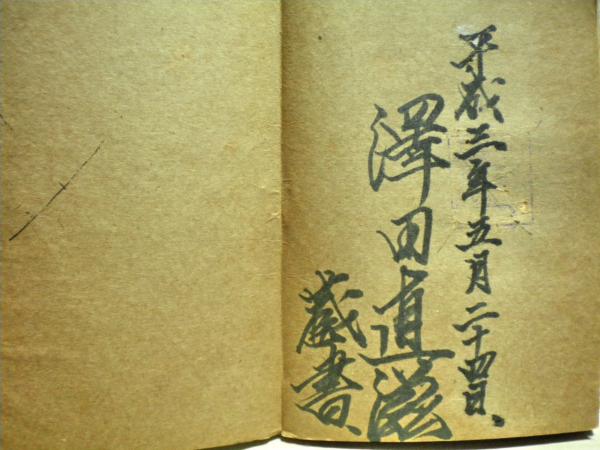 平成三年五月二十四日、
澤田道滋
蔵書、